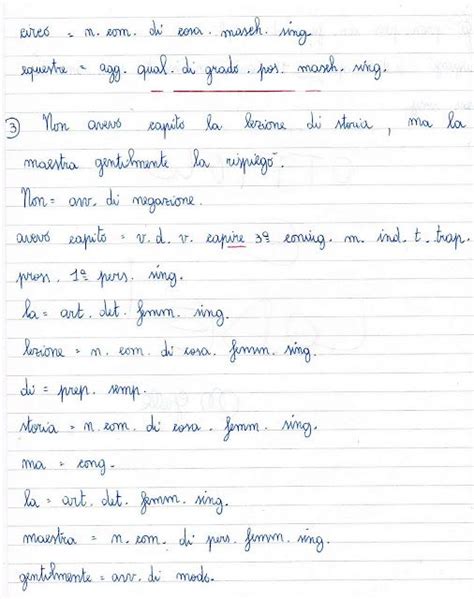 circo = n. com. di cosa. masch. sing.
equestre = agg. qual. di grado. pos. masch. sing.
3 Non avevo capito la lezione di storia, ma la
maestra gentilmente la rispiegò.
Non = avv. di negazione.
avevo capito = v. d. v. capire 3ª coniug. m. ind. t. trap.
pross. 1ª pers. sing.
la = art. det. femm. sing.
lezione = n. com. di cosa. femm. sing.
di = prep. semp.
storia = n. com. di cosa. femm. sing.
ma = cong.
la = art. det. femm. sing.
maestra = n. com. di pers. femm. sing.
gentilmente = avv. di modo.